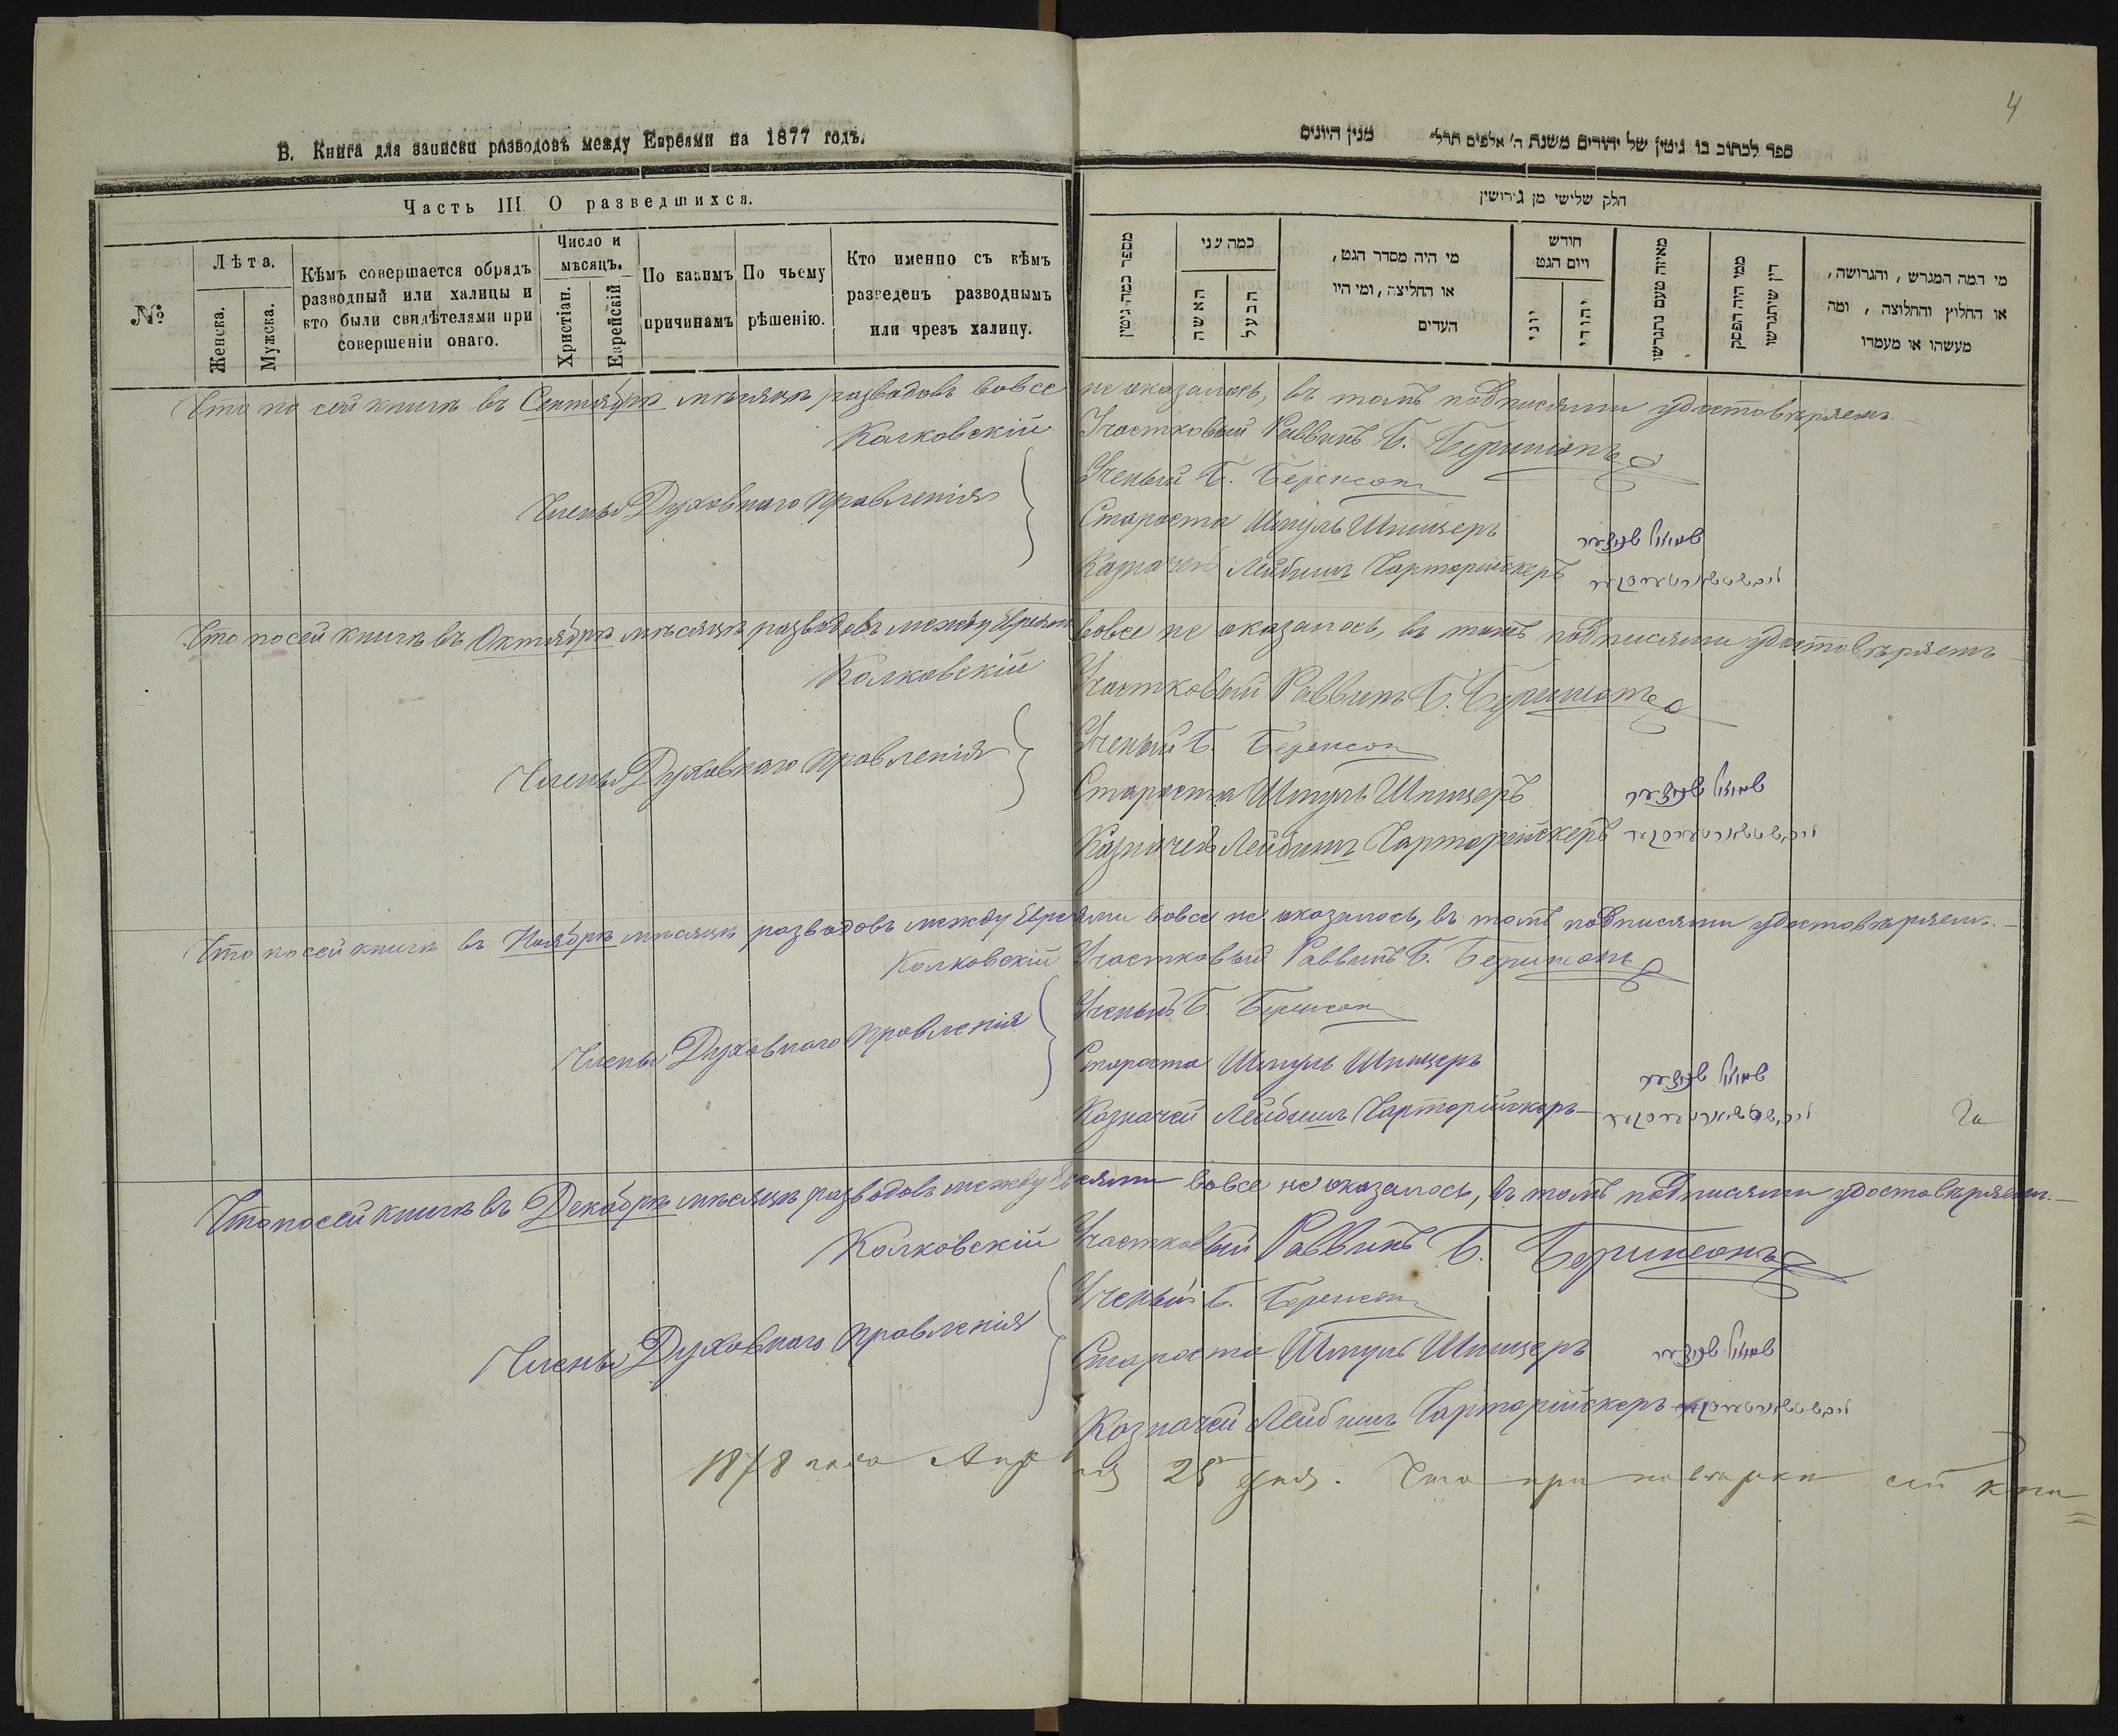 4
В. Книга для записки разводовъ между Евреями на 1877 годъ.
ספר לכתוב בו גיטין של יהודים משנת ה' אלפים תרל" מנין היונים
Часть III О разведшихся.
№
Лѣта.
Женска.
Мужска.
Кѣмъ совершается обрядъ
разводный или халицы и
кто были свидѣтелями при
совершеніи онаго.
Число и
мѣсяцъ.
Христіан.
Еврейскій
По какимъ
причинамъ
По чьему
рѣшенію.
Кто именно съ кѣмъ
разведенъ разводнымъ
или чрезъ халицу.
חלק שלישי מן גירושין
מספר כמה גיטין
כמה שני
האשה
הבעל
מי היה מסדר הגט,
או החליצה, ומי היו
העדים
חודש
ויום הגט
יוני
יהודי
מאיזה טעם נתגרשו
ממי היה הפסק
דין שיתגרשו
מי המה המגרש, והגרושה,
או החלוץ והחלוצה, ומה
מעשהו או מעמדו
Что по сей книгѣ въ Сентябрѣ мѣсяцѣ разводовъ вовсе не оказалось, въ томъ подписями удостовѣряемъ
Колковскій Участковый Раввинъ Б. Беринсонъ
Члены Духовнаго Правленія
Ученый Б. Беренсон
Староста Шмуль Шпицеръ שמואל שפיצער
Казначей Лейбишъ Чарторійскеръ
Что по сей книгѣ въ Октябрѣ мѣсяцѣ разводовъ между Евреями вовсе не оказалось, въ томъ подписями удостовѣряемъ
Колковскій Участковый Раввинъ Б. Беринсонъ
Члены Духовнаго Правленія
Ученый Б. Беренсон
Староста Шмуль Шпицеръ שמואל שפיצער
Казначей Лейбишъ Чарторійскеръ
Что по сей книгѣ въ Ноябрѣ мѣсяцѣ разводовъ между Евреями вовсе не оказалось, въ томъ подписями удостовѣряемъ.
Колковскій Участковый Раввинъ Б. Беринсонъ
Члены Духовнаго Правленія
Ученый Б. Беренсон
Староста Шмуль Шпицеръ שמואל שפיצער
Казначей Лейбишъ Чарторійскеръ
Что по сей книгѣ въ Декабрѣ мѣсяцѣ разводовъ между Евреями вовсе не оказалось, въ томъ подписями удостовѣряемъ.
Колковскій Участковый Раввинъ Б. Беринсонъ
Члены Духовнаго Правленія
Ученый Б. Беренсон
Староста Шмуль Шпицеръ שמואל שפיצער
Казначей Лейбишъ Чарторійскеръ
1878 года Апрѣля 25 дня. Что при повѣрки сей кни=